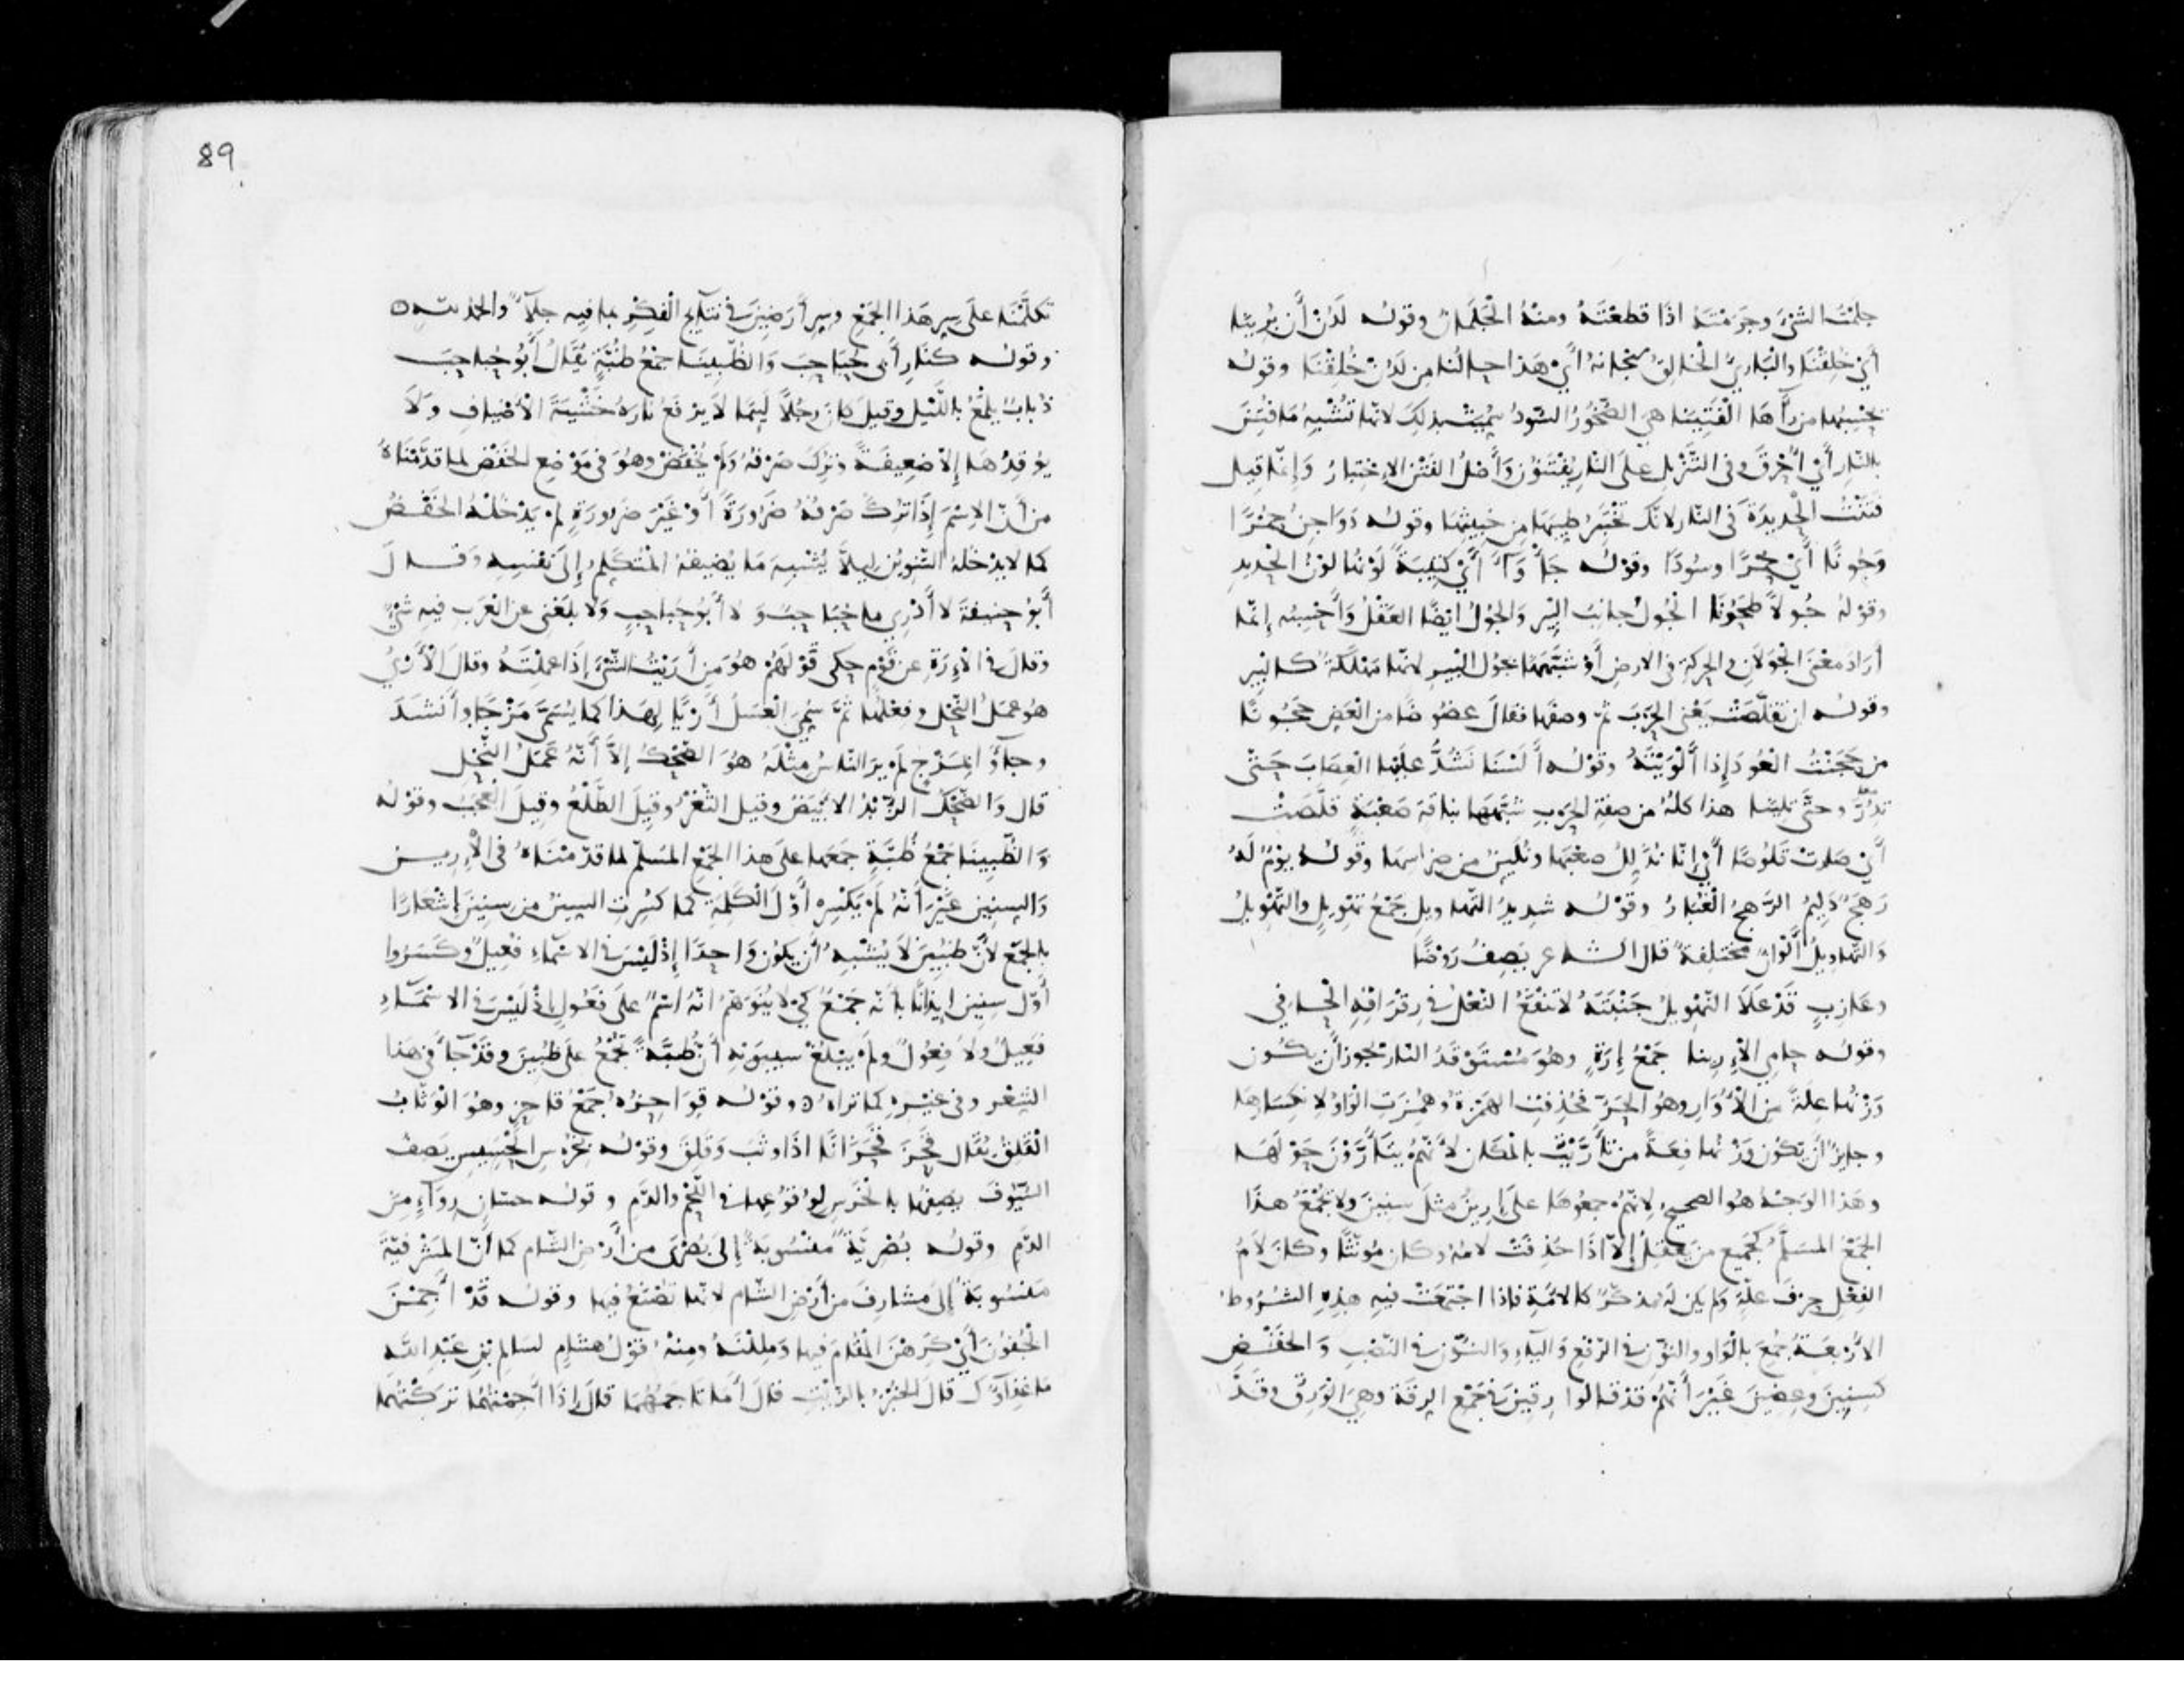 جلمت الشيء وجرمته اذا قطعته ومنه الجلمان وقوله لدن أن برينا
أي خلقنا والباري الخالق سبحانه أي هذا حالنا من لدن خلقنا وقوله
يحسبها من رآها الفتينا هي الصخور السود سميت بذلك لانها تشبه ما فتن
بالنار أي أحرق وفي التنزيل على النار يفتنون وأصل الفتن الاختبار وإنما قيل
فتنت الحديدة في النار لانك تختبر طيبها من خبيثها وقوله دواجن حمرا
وجونا أي حمرا وسودا وقوله جأواء أي كتيبة لونها لون الحديد
وقوله جولا طحونا الجول جانب البير والجول ايضا العقل وأحسبه إنما
أراد معنى الجولان والحركة في الارض أو شبهها بجول البير لانها مهلكة كالبير
وقوله ان تقلصت يعني الحرب ثم وصفها فقال عضوضا من العض حجونا
من حجنت العود إذا ألويته وقوله ألسنا نشد عليها العصاب حتى
تدر وحتى تلينا هذا كله من صفة الحرب شبهها بناقة صعبة قلصت
أي صارت قلوصا أي إنا نذلل صعبها ونلين من ضراسها وقوله يوم له
رهج دليم الرهج الغبار وقوله شديد التهاويل جمع تهويل والتهويل
والتهاويل ألوان مختلفة قال الشاعر يصف روضا
وعازب قد علا التهويل جنبته لا تنفع النعل في رقراقه الحافي
وقوله حامي الإرينا جمع إرة وهو مستوقد النار يجوز أن يكون
وزنها علة من الأوار وهو الحر فحذفت الهمزة وهمزت الواو لانكسارها
وجايز أن يكون وزنها فعة من تأريت بالمكان لأنهم يتأرون حولها
وهذا الوجه هو الصحيح لانهم جمعوها على إرين مثل سنين ولا يجمع هذا
الجمع المسلم كجمع من يعقل إلا اذا حذفت لامه وكان مونثا وكان لام
الفعل حرف علة ولم يكن له مذكر كالامة فاذا اجتمعت فيه هذه الشروط
الاربعة جمع بالواو والنون في الرفع والياء والنون في النصب والخفض
كسنين وعضين غير أنهم قد قالوا رقين في جمع الرقة وهي الورق وقد
تكلمنا على سر هذا الجمع وسر أرضين في نتايج الفكر بما فيه جلاء والحمد لله
وقوله كنار أبي حباحب والظبينا جمع ظبة يقال أبو حباحب
ذباب يلمع بالليل وقيل كان رجلا ليما لا يرفع ناره خشية الأضياف ولا
يوقدها إلا ضعيفة وترك صرفه ولم يخفض وهو في موضع الخفض لما قدمناه
من أن الاسم إذا ترك صرفه ضرورة أو غير ضرورة لم يدخله الخفض
كما لا يدخله التنوين ليلا يشبه ما يضيفه المتكلم إلى نفسه وقال
أبو حنيفة لا أدري ما حباحب ولا أبو حباحب ولا بلغني عن العرب فيه شيء
وقال في الإرة عن قوم حكى قولهم هو من أريت الشيء إذا عملته وقال الأري
هو عمل النحل وفعلها ثم سمي العسل أريا لهذا كما يسمى مزجا وأنشد
وجاؤا بمزج لم ير الناس مثله هو الضحك إلا أنه عمل النحل
قال والضحك الزبد الابيض وقيل الثغر وقيل الطلع وقيل العجب وقوله
والظبينا جمع ظبة جمعها على هذا الجمع المسلم لما قدمناه في الإرين
والسنين غير أنه لم يكسر أول الكلمة كما كسرت السين من سنين إشعارا
بالجمع لأن ظبين لا يشبه أن يكون واحدا إذ ليس في الاسماء فعيل وكسروا
أول سنين إيذانا بأنه جمع كي لا يتوهم أنه اسم على فعول إذ ليس في الاسماء
فعيل ولا فعول ولم يبلغ سيبويه أن ظبة تجمع على ظبين وقد جاء في هذا
الشعر وفي غيره كما تراه وقوله قواحزه جمع قاحز وهو الوثاب
القلق يقال قحز قحزانا اذا وثب وقلق وقوله بخرس الحسيس يصف
السيوف يصفها بالخرس لوقوعها في اللحم والدم وقوله حسان رواء من
الدم وقوله بصرية منسوبة إلى بصرى من أرض الشام كما أن المشرفية
منسوبة إلى مشارف من أرض الشام لانها تصنع فيها وقوله قد أجمن
الجفون أي كرهن المقام فيها ومللنه ومنه قول هشام لسالم بن عبد الله
ما غداؤك قال الخبز بالزيت قال أما تأجمهما قال إذا أجمتهما تركتهما
89